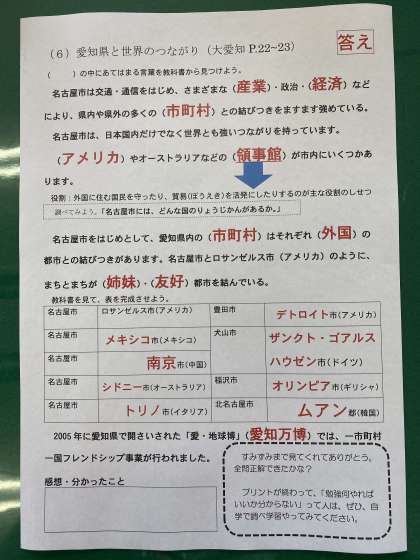 (6)愛知県と世界のつながり(大愛知 P.22~23)
答え
(　)の中にあてはまる言葉を教科書から見つけよう。
名古屋市は交通・通信をはじめ、さまざまな(産業)・政治・(経済)など
により、県内や県外の多くの(市町村)との結びつきをますます強めている。
名古屋市は、日本国内だけでなく世界とも強いつながりを持っています。
(アメリカ)やオーストラリアなどの(領事館)が市内にいくつかあ
ります。
役割:外国に住む国民を守ったり、貿易(ぼうえき)を活発にしたりするのが主な役割のしせつ
調べてみよう。「名古屋市には、どんな国のりょうじかんがあるか。」
名古屋市をはじめとして、愛知県内の(市町村)はそれぞれ(外国)の
都市との結びつきがあります。名古屋市とロサンゼルス市(アメリカ)のように、
まちとまちが(姉妹)・(友好)都市を結んでいる。
教科書を見て、表を完成させよう。
名古屋市 ロサンゼルス市(アメリカ) 豊田市 デトロイト市(アメリカ)
名古屋市 メキシコ市(メキシコ) 犬山市 ザンクト・ゴアルス
名古屋市 南京市(中国) ハウゼン市(ドイツ)
名古屋市 シドニー市(オーストラリア) 稲沢市 オリンピア市(ギリシャ)
名古屋市 トリノ市(イタリア) 北名古屋市 ムアン郡(韓国)
2005年に愛知県で開さいされた「愛・地球博」(愛知万博)では、一市町村
一国フレンドシップ事業が行われました。
感想・分かったこと
すみずみまで見てくれてありがとう。
全問正解できたかな?
プリントが終わって、「勉強何やれば
いいか分からない」って人は、ぜひ、自
学で調べ学習やってみてください。